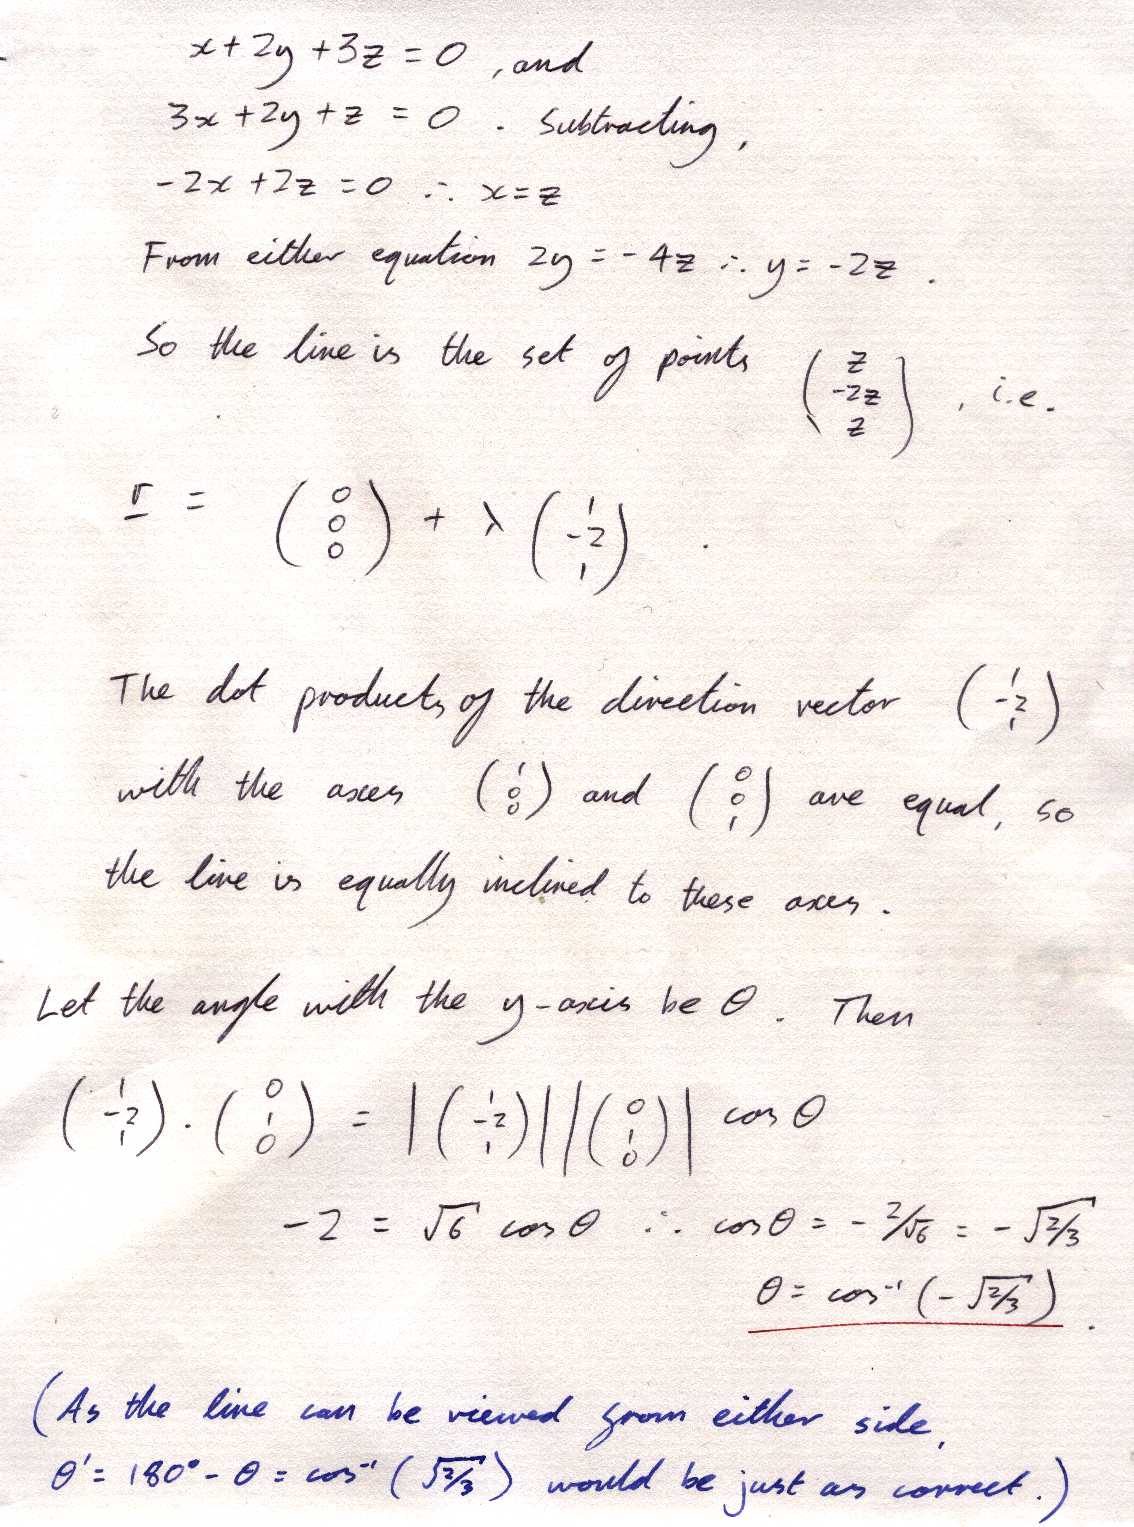 x + 2y + 3z = 0, and
3x + 2y + z = 0. Subtracting,
-2x + 2z = 0 ∴ x = z
From either equation 2y = -4z ∴ y = -2z.
So the line is the set of points (z -2z z), i.e.
r = (0 0 0) + λ (1 -2 1).
The dot products of the direction vector (1 -2 1)
with the axes (1 0 0) and (0 0 1) are equal, so
the line is equally inclined to these axes.
Let the angle with the y-axis be θ. Then
(1 -2 1) . (0 1 0) = |(1 -2 1)| |(0 1 0)| cos θ
-2 = √6 cos θ ∴ cos θ = -2/√6 = -√2/3
θ = cos⁻¹ (-√2/3).
(As the line can be viewed from either side,
θ' = 180° - θ = cos⁻¹ (√2/3) would be just as correct.)